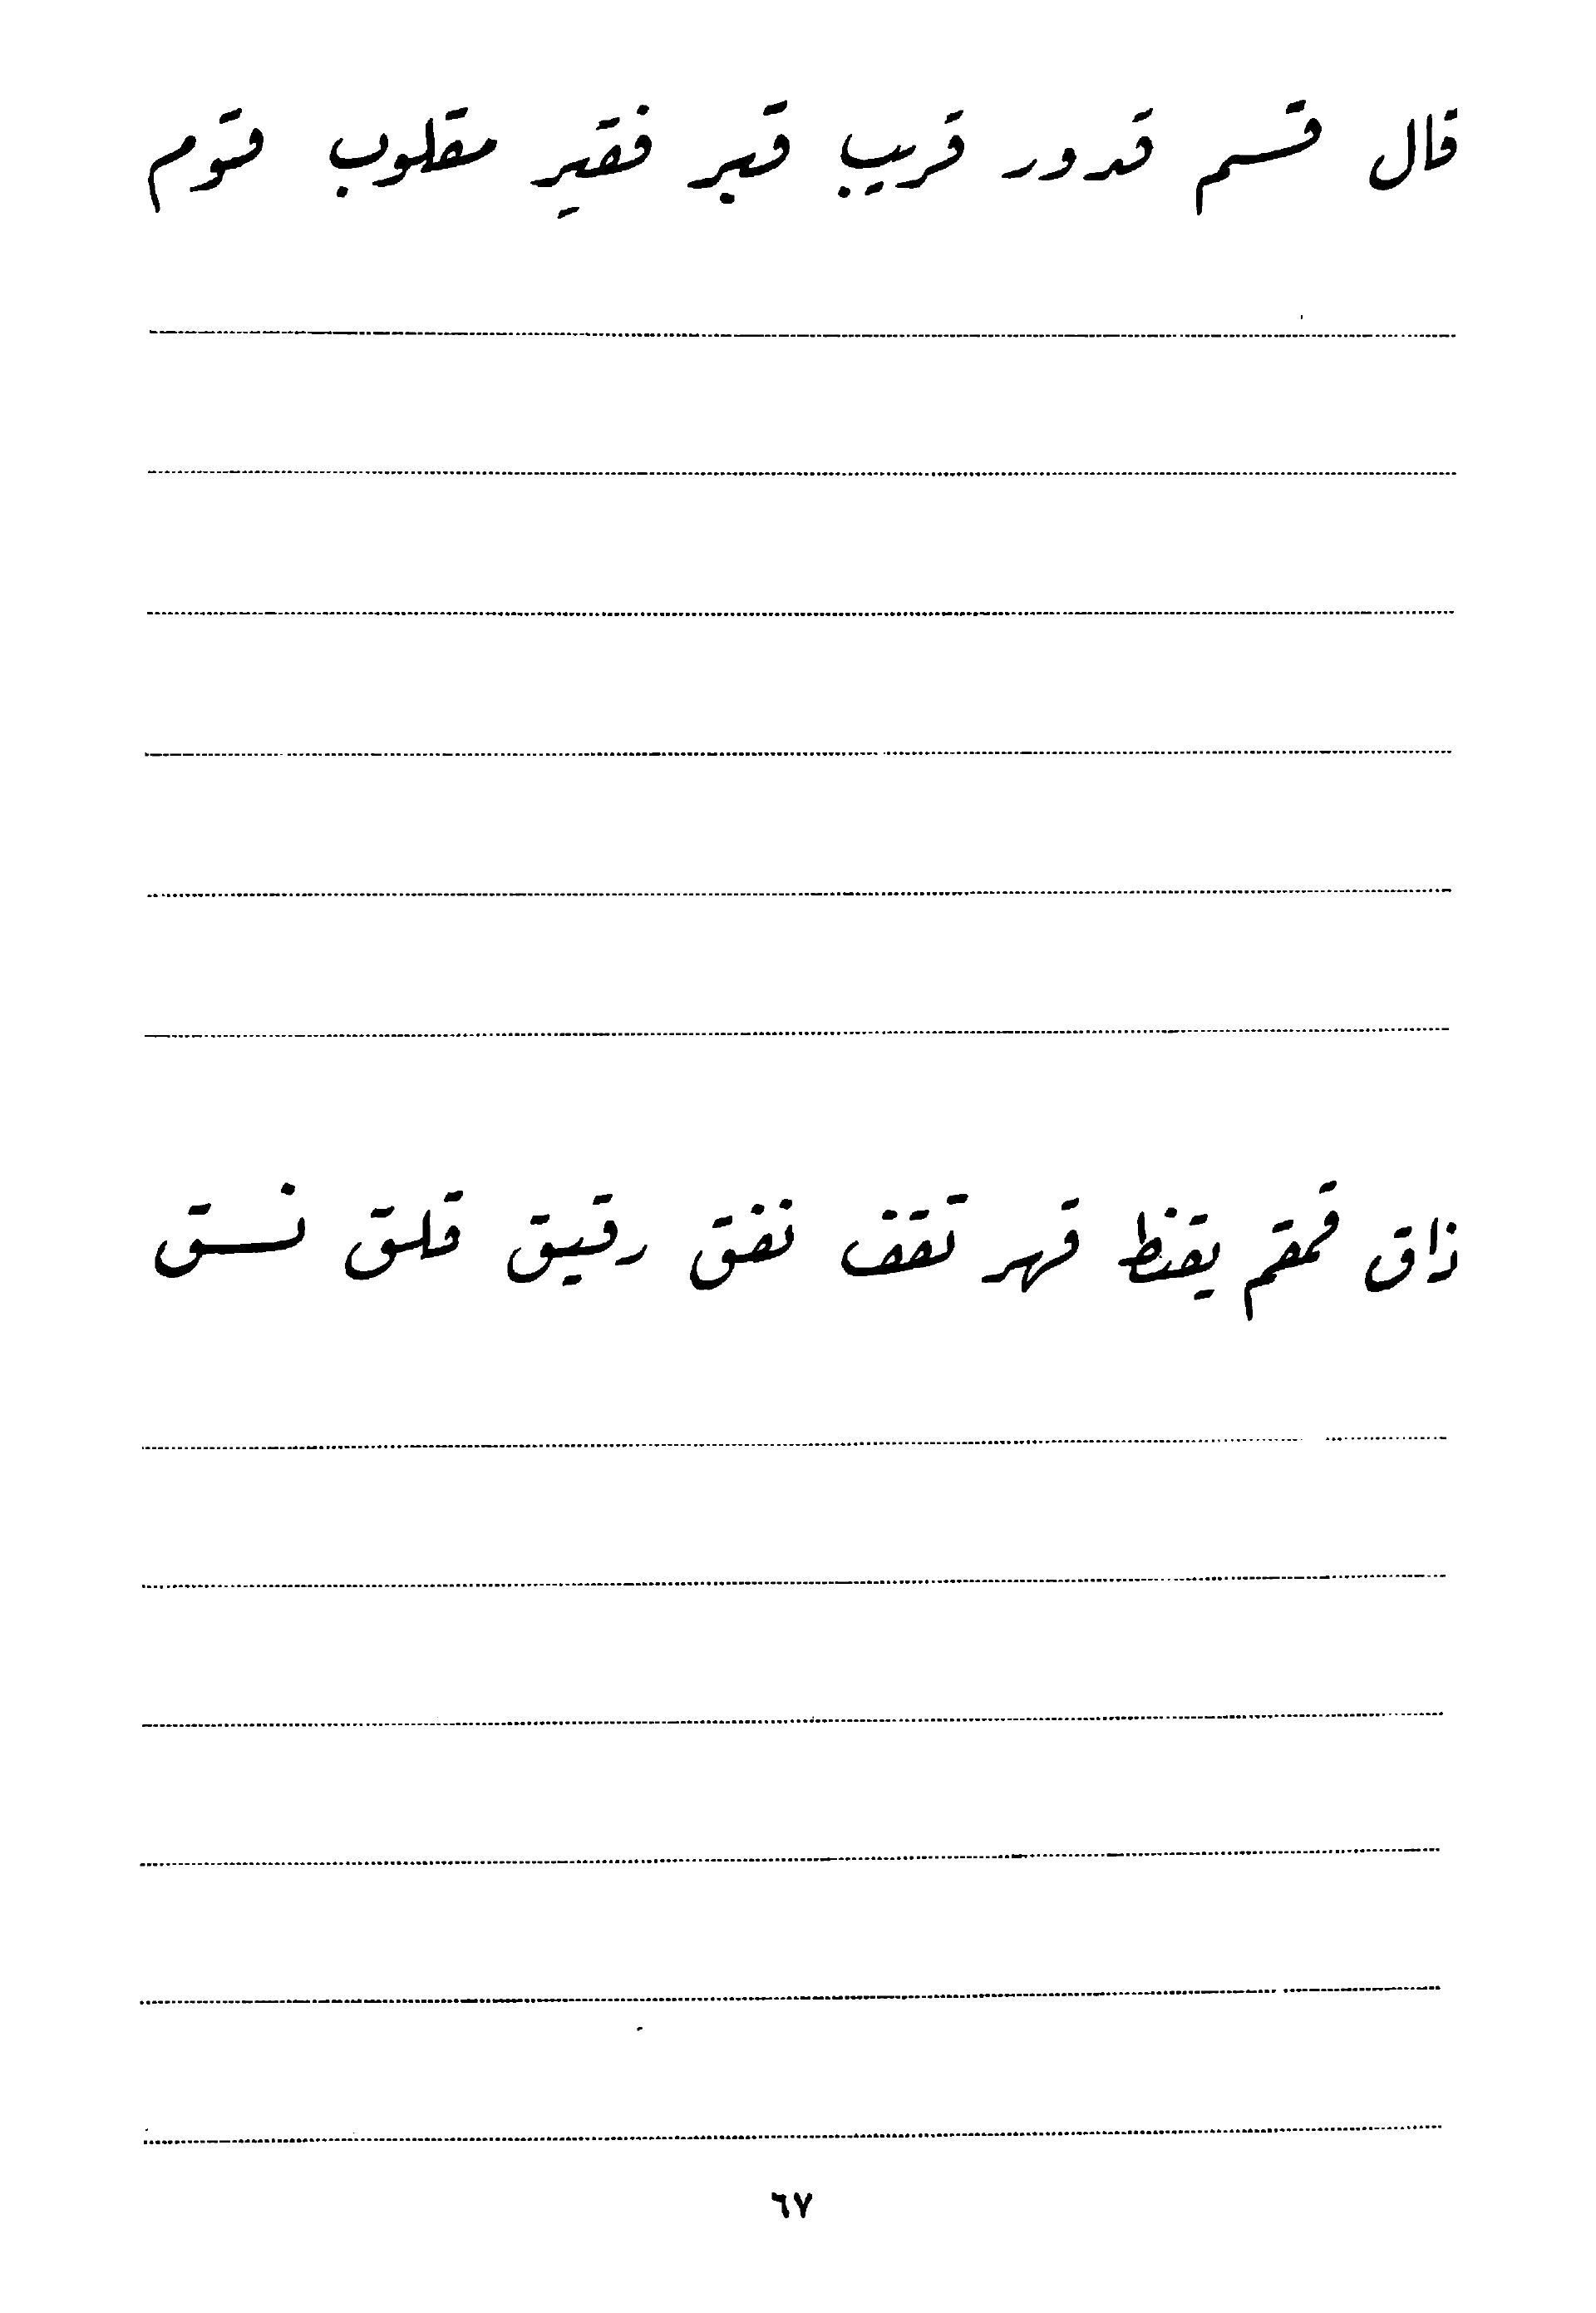 قال قسم قدور قريب قبر فقير مقلوب قوم
ذاق قمقم يقظ قهر تقف نفق رقيق قلق نسق
٦٧